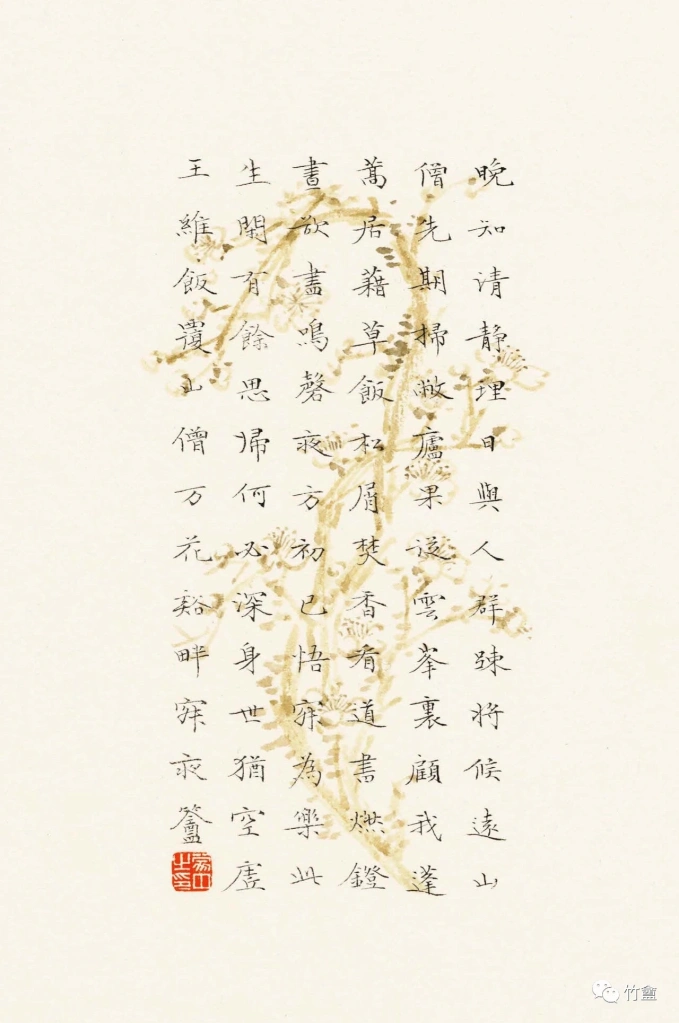 晚知清静理日與人群踈将候遠山
僧先期掃敝廬果從雲峯裏顧我蓬
蒿居藉草飯松屑焚香看道書燃鐙
晝欲盡鳴磬夜方初已悟寂為樂此
生閑有餘思歸何必深身世猶空虗
王維飯覆山僧万花谿畔寂夜盦
竹盦